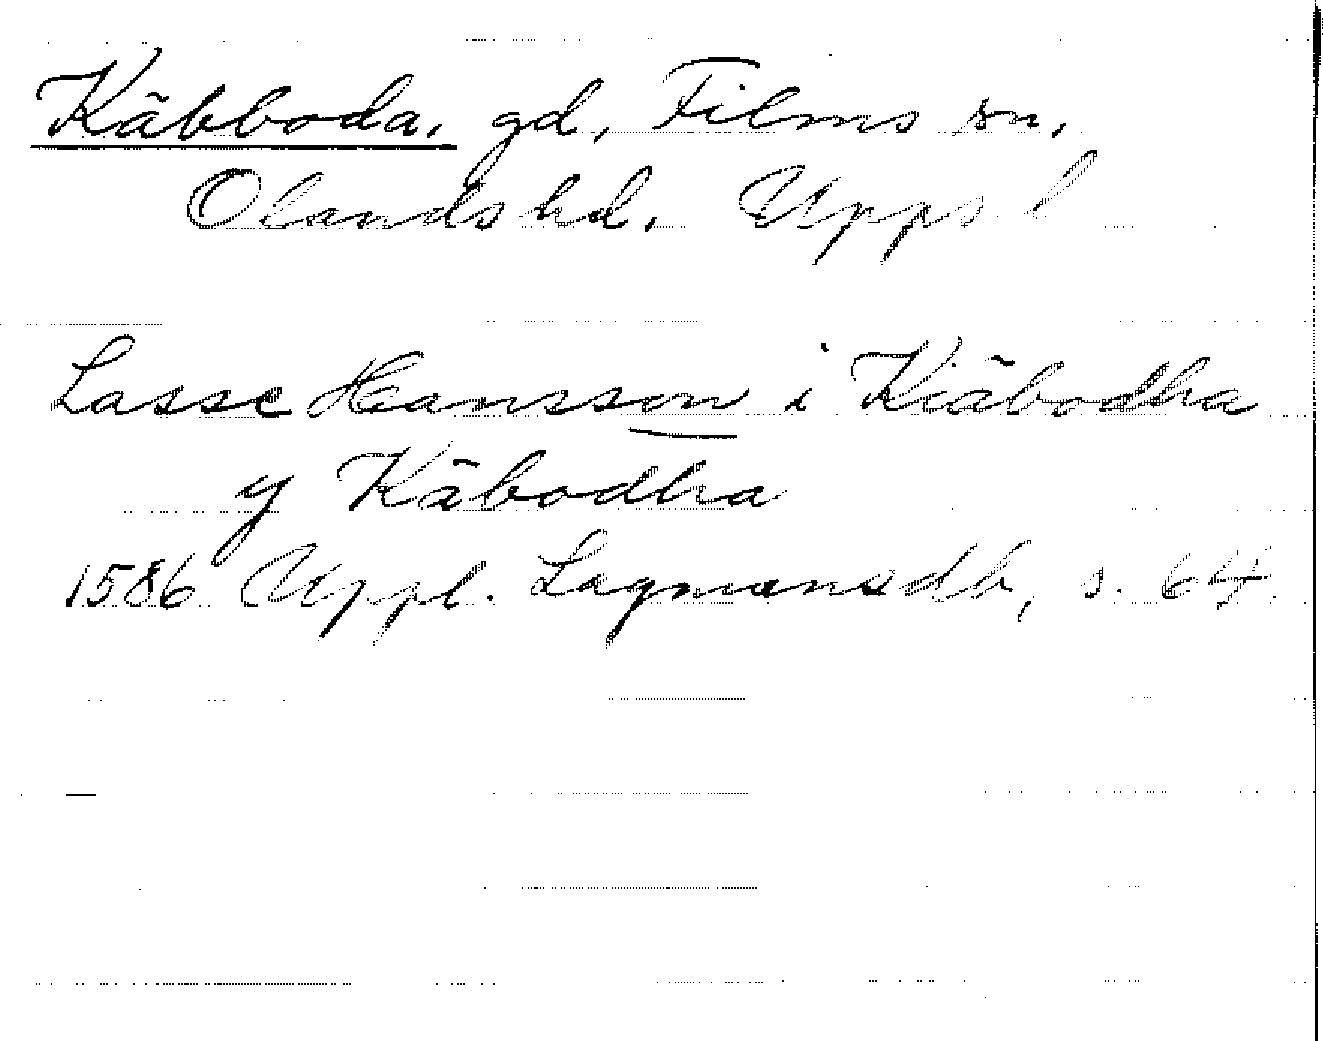 Käbboda, gd, Films sn,
Olands hd. Upps l
Lasse Hansson i Kiäbodha
y Käbodha
1586 Uppl. Lagmansdb, s. 64.